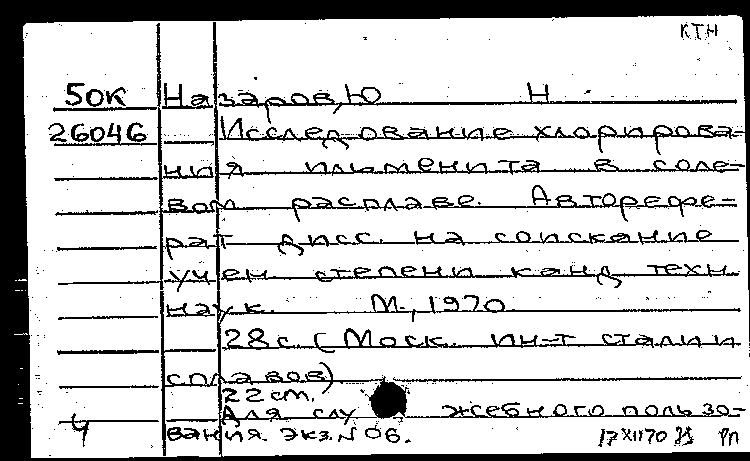 КТН
50К Назаров, Ю Н
26046 Исследование хлорирова-
ния ильменита в соле-
вом расплаве. Авторефе-
рат дисс. на соискание
учен степени канд техн
наук. М., 1970
28 с (Моск. ин-т стали и
сплавов)
22 cm.
Для служебного пользо-
4 вания. экз. N 06. 17 XII 70